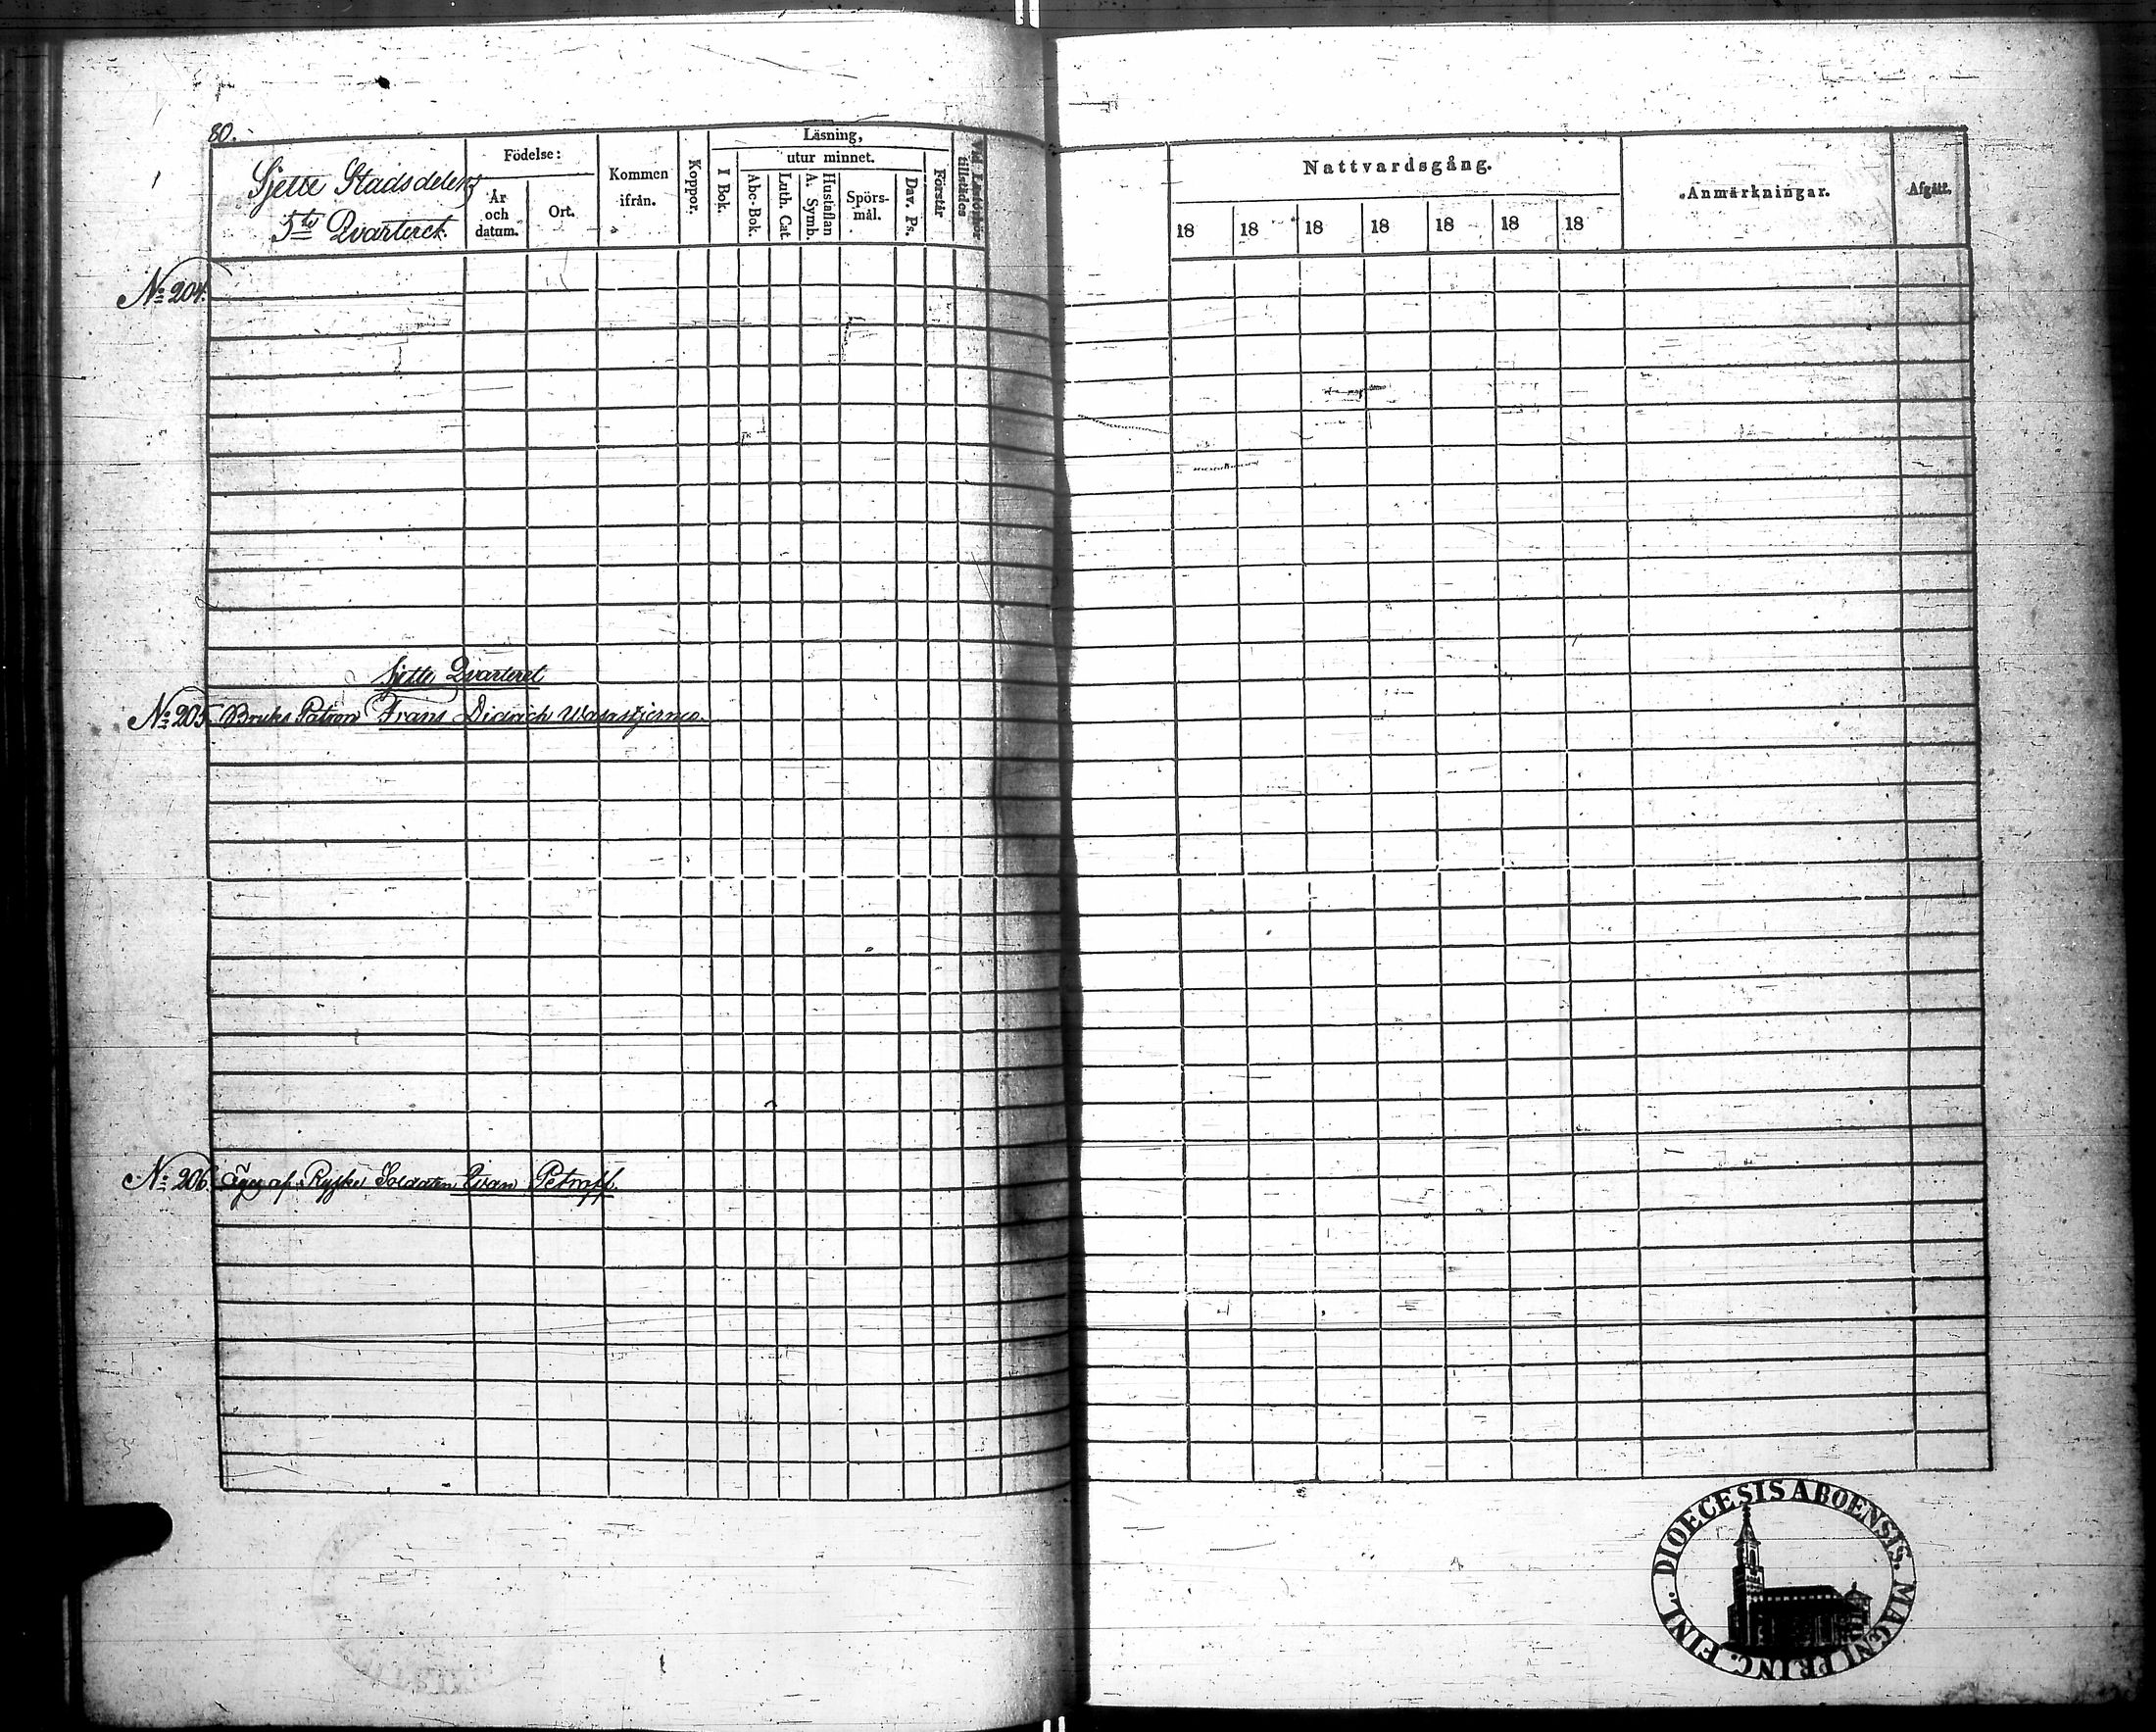 80.
Sjette Stadsdelens
5te Qvarteret.
Födelse:
År och datum.
Ort.
Kommen ifrån.
Koppor.
Läsning,
I Bok.
utur minnet.
Abc-Bok.
Luth. Cat.
Hustaflan A. Symb.
Spörsmål.
Dav. Ps.
Förstår
Vid Läsförhör tillstädes
Nattvardsgång.
18 18 18 18 18 18 18
Anmärkningar.
Afgått.
No 204.
Sjette Qvarteret
No 205. Bruks Patron Frans Didrich Wasastjerna.
No 206. äges af Ryske Soldaten Ivan Petroff.
DIOECESIS ABOENSIS. MAGNI PRINC. FINL.